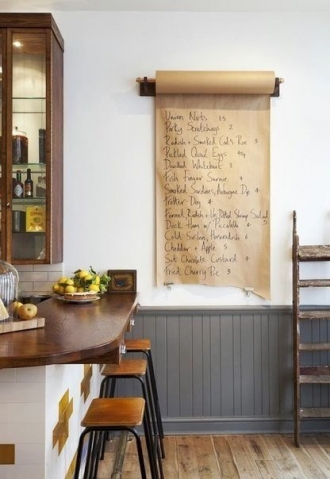 Union Nuts 1.5
Pork Scratchings 2
Radish + Smoked Cod's Roe 3
Pickled Quail Eggs
Devilled Whitebait 3
Fish Finger Sarnie 4
Smoked Sardines, 4
Trotter Dog 4
Peanut, Radish + Shrimp Salad
Duck Ham w/ Piccalilli 4
Cold Sirloin, Horseradish 6
Cheddar + Apple 3
Salt Chocolate Custard 4
Fried Cherry Pie 3